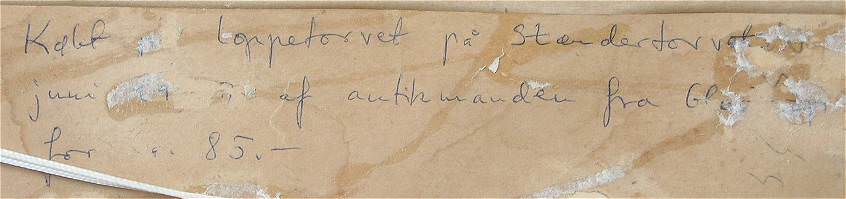 Købt på Loppetorvet på Stændertorvet
juni af antikmanden fra
for 85.-